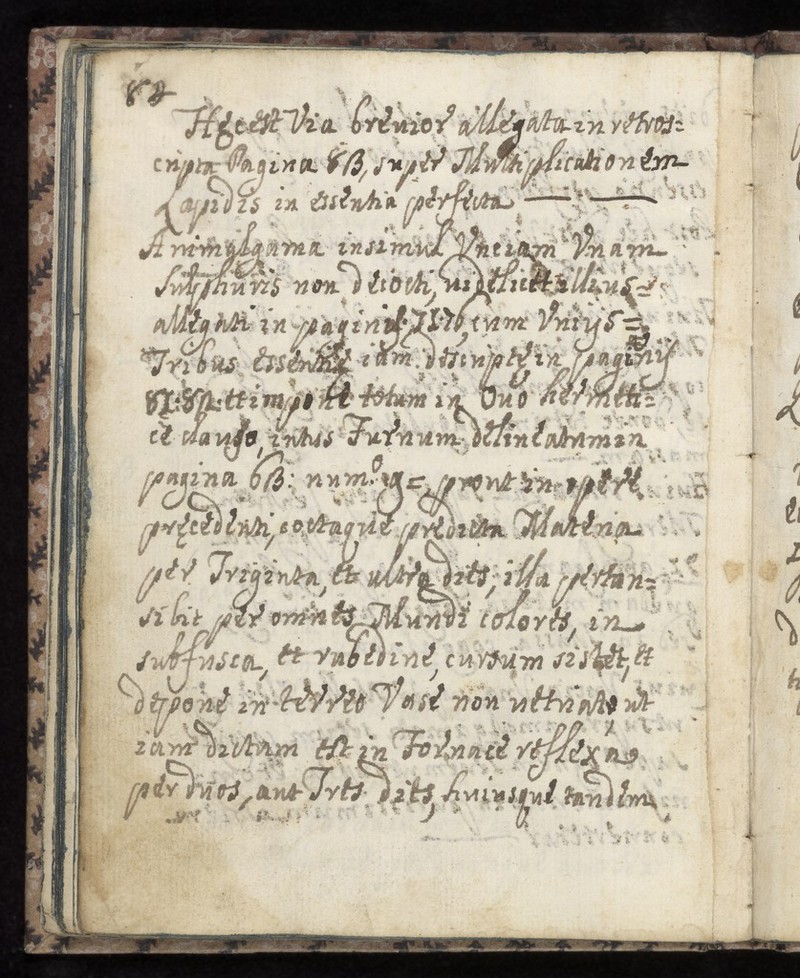 84
Hęc est Via brevior allegata in retros=
cripta Pagina 83, super Multiplicationem
Lapidis in essentia perfecta
insimul Vnciam Vnam
Sulphuris non decocti, videlicet illius=
allegati in cum Vncijs=
Tribus essentię iam descriptę, in paginis
et impone totum in Ovo hermeti=
cè clauso, intus Furnum delineatum in
pagina 63: num.º 19= prout in opere
pręcedenti, coctaque prędicta Materia
per Triginta, et ultra dies, illa pertran=
sibit per omnes Mundi colores, in
subfusca, et rubedine, cursum sistet, et
depone in terreo Vase non vetriato ut
iam dictum est in Fornace reflexa
per duos, aut Tres dies, huiusque tandem